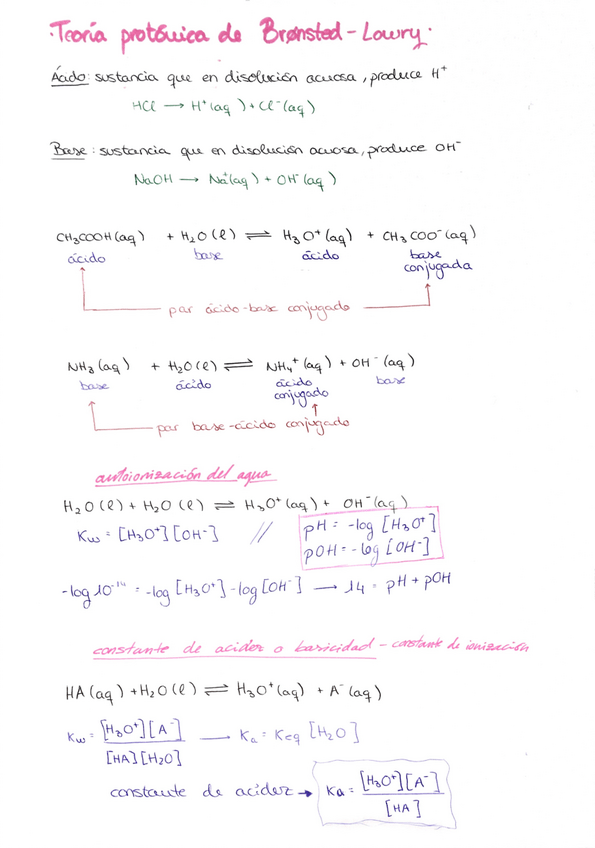 ·Teoría protónica de Brønsted-Lowry·
Ácido: sustancia que en disolución acuosa, produce H⁺
HCl → H⁺(aq) + Cl⁻(aq)
Base: sustancia que en disolución acuosa, produce OH⁻
NaOH → Na⁺(aq) + OH⁻(aq)
CH₃COOH(aq) + H₂O(l) ⇌ H₃O⁺(aq) + CH₃COO⁻(aq)
ácido base ácido base conjugada
par ácido-base conjugado
NH₃(aq) + H₂O(l) ⇌ NH₄⁺(aq) + OH⁻(aq)
base ácido ácido conjugado base
par base-ácido conjugado
autoionización del agua
H₂O(l) + H₂O(l) ⇌ H₃O⁺(aq) + OH⁻(aq)
Kw = [H₃O⁺][OH⁻] // pH = -log [H₃O⁺]
pOH = -log [OH⁻]
-log 10⁻¹⁴ = -log [H₃O⁺] -log [OH⁻] → 14 = pH + pOH
constante de acidez o basicidad - constante de ionización
HA(aq) + H₂O(l) ⇌ H₃O⁺(aq) + A⁻(aq)
Kw = [H₃O⁺][A⁻] / [HA][H₂O] — Ka = Keq [H₂O]
constante de acidez → Ka = [H₃O⁺][A⁻] / [HA]